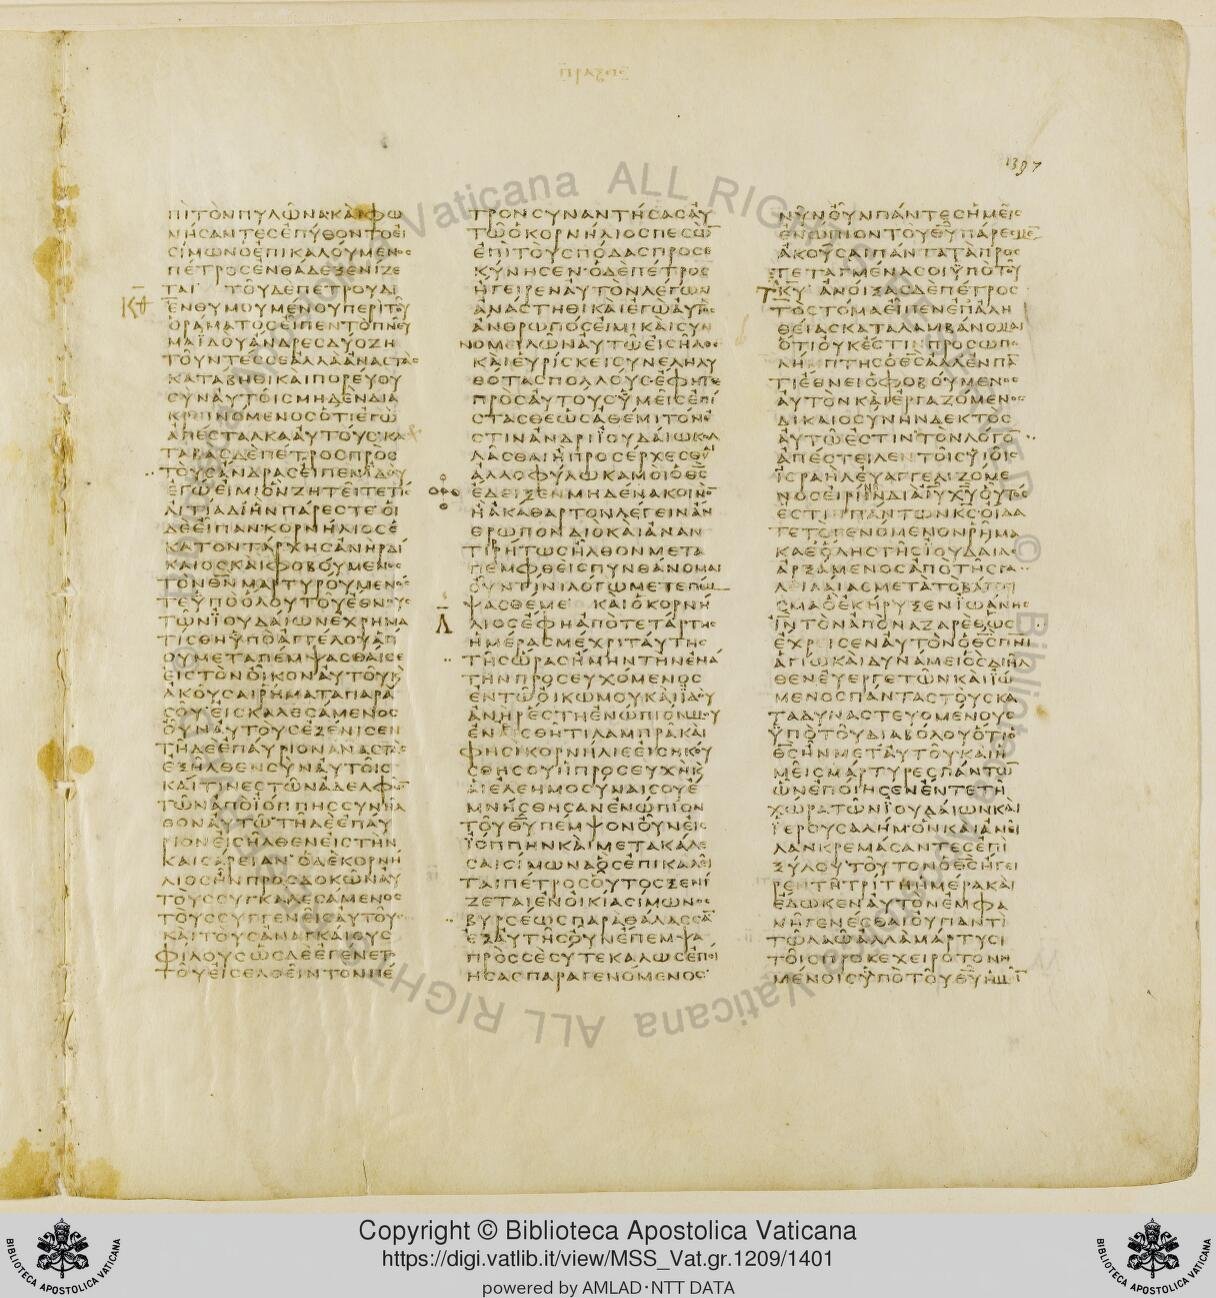 πραξεις
1397
ΠΙΤΟΝΠΥΛΩΝΑΚΑΙΦΩ
ΝΗΣΑΝΤΕΣΕΠΥΘΟΝΤΟΕΙ
ΣΙΜΩΝΟΕΠΙΚΑΛΟΥΜΕΝΟΣ
ΠΕΤΡΟΣΕΝΘΑΔΕΞΕΝΙΖΕ
ΤΑΙ ΤΟΥΔΕΠΕΤΡΟΥΔΙ
ΚΘ
ΕΝΘΥΜΟΥΜΕΝΟΥΠΕΡΙΤΟΥ
ΟΡΑΜΑΤΟΣΕΙΠΕΝΤΟΠΝΕΥ
ΜΑΙΔΟΥΑΝΔΡΕΣΔΥΟΖΗ
ΤΟΥΝΤΕΣΣΕΑΛΛΑΑΝΑΣΤΑΣ
ΚΑΤΑΒΗΘΙΚΑΙΠΟΡΕΥΟΥ
ΣΥΝΑΥΤΟΙΣΜΗΔΕΝΔΙΑ
ΚΡΕΙΝΟΜΕΝΟΣΟΤΙΕΓΩ
ΑΠΕΣΤΑΛΚΑΑΥΤΟΥΣΚΑ
ΤΑΒΑΣΔΕΠΕΤΡΟΣΠΡΟΣ
ΤΟΥΣΑΝΔΡΑΣΕΙΠΕΝΙΔΟΥ
ΕΓΩΕΙΜΙΟΝΖΗΤΕΙΤΕΤΙΣ
ΑΙΤΙΑΔΙΗΝΠΑΡΕΣΤΕΟΙ
ΔΕΕΙΠΑΝΚΟΡΝΗΛΙΟΣΕ
ΚΑΤΟΝΤΑΡΧΗΣΑΝΗΡΔΙ
ΚΑΙΟΣΚΑΙΦΟΒΟΥΜΕΝΟΣ
ΤΟΝΘΝΜΑΡΤΥΡΟΥΜΕΝΟΣ
ΤΕΥΠΟΟΛΟΥΤΟΥΕΘΝΟΥΣ
ΤΩΝΙΟΥΔΑΙΩΝΕΧΡΗΜΑ
ΤΙΣΘΗΥΠΟΑΓΓΕΛΟΥΑΓΙ
ΟΥΜΕΤΑΠΕΜΨΑΣΘΑΙΣΕ
ΕΙΣΤΟΝΟΙΚΟΝΑΥΤΟΥΚ
ΑΚΟΥΣΑΙΡΗΜΑΤΑΠΑΡΑ
ΣΟΥΕΙΣΚΑΛΕΣΑΜΕΝΟΣ
ΟΥΝΑΥΤΟΥΣΕΞΕΝΙΣΕΝ
ΤΗΔΕΕΠΑΥΡΙΟΝΑΝΑΣΤΑΣ
ΕΞΗΛΘΕΝΣΥΝΑΥΤΟΙΣ
ΚΑΙΤΙΝΕΣΤΩΝΑΔΕΛΦΩ
ΤΩΝΑΠΟΙΟΠΠΗΣΣΥΝΗΛ
ΘΟΝΑΥΤΩΤΗΔΕΕΠΑΥ
ΡΙΟΝΕΙΣΗΛΘΕΝΕΙΣΤΗΝ
ΚΑΙΣΑΡΕΙΑΝΟΔΕΚΟΡΝΗ
ΛΙΟΣΗΝΠΡΟΣΔΟΚΩΝΑΥ
ΤΟΥΣΣΥΓΚΑΛΕΣΑΜΕΝΟΣ
ΤΟΥΣΣΥΓΓΕΝΕΙΣΑΥΤΟΥ
ΚΑΙΤΟΥΣΑΝΑΓΚΑΙΟΥΣ
ΦΙΛΟΥΣΩΣΔΕΕΓΕΝΕΤ
ΤΟΥΕΙΣΕΛΘΕΙΝΤΟΝΠΕ
ΤΡΟΝΣΥΝΑΝΤΗΣΑΣΑΥ
ΤΩΟΚΟΡΝΗΛΙΟΣΠΕΣΩ
ΕΠΙΤΟΥΣΠΟΔΑΣΠΡΟΣΕ
ΚΥΝΗΣΕΝΟΔΕΠΕΤΡΟΣ
ΗΓΕΙΡΕΝΑΥΤΟΝΛΕΓΩΝ
ΑΝΑΣΤΗΘΙΚΑΙΕΓΩΑΥΤΟΣ
ΑΝΘΡΩΠΟΣΕΙΜΙΚΑΙΣΥΝ
ΝΟΜΕΙΛΩΝΑΥΤΩΕΙΣΗΛΘΕ
ΚΑΙΕΥΡΙΣΚΕΙΣΥΝΕΛΗΛΥ
ΘΟΤΑΣΠΟΛΛΟΥΣΕΦΗΤΕ
ΠΡΟΣΑΥΤΟΥΣΥΜΕΙΣΕΠΙ
ΣΤΑΣΘΕΩΣΑΘΕΜΙΤΟΝΕ
ΣΤΙΝΑΝΔΡΙΙΟΥΔΑΙΩΚΟΛ
ΛΑΣΘΑΙΗΠΡΟΣΕΡΧΕΣΘΑΙ
ΑΛΛΟΦΥΛΩΚΑΜΟΙΟΘΣ
ΕΔΕΙΞΕΝΜΗΔΕΝΑΚΟΙΝΟ
ΗΑΚΑΘΑΡΤΟΝΛΕΓΕΙΝΑΝ
ΘΡΩΠΟΝΔΙΟΚΑΙΑΝΑΝ
ΤΙΡΗΤΩΣΗΛΘΟΝΜΕΤΑ
ΠΕΜΦΘΕΙΣΠΥΝΘΑΝΟΜΑΙ
ΟΥΝΤΙΝΙΛΟΓΩΜΕΤΕΠΕΜ
ΨΑΣΘΕΜΕ ΚΑΙΟΚΟΡΝΗ
Λ
ΛΙΟΣΕΦΗΑΠΟΤΕΤΑΡΤΗΣ
ΗΜΕΡΑΣΜΕΧΡΙΤΑΥΤΗΣ
ΤΗΣΩΡΑΣΗΜΗΝΤΗΝΕΝΑ
ΤΗΝΠΡΟΣΕΥΧΟΜΕΝΟΣ
ΕΝΤΩΟΙΚΩΜΟΥΚΑΙΙΔΟΥ
ΑΝΗΡΕΣΤΗΕΝΩΠΙΟΝΜΟΥ
ΕΝΕΣΘΗΤΙΛΑΜΠΡΑΚΑΙ
ΦΗΣΙΚΟΡΝΗΛΙΕΕΙΣΗΚΟΥ
ΣΘΗΣΟΥΗΠΡΟΣΕΥΧΗΚ
ΑΙΕΛΕΗΜΟΣΥΝΑΙΣΟΥΕ
ΜΝΗΣΘΗΣΑΝΕΝΩΠΙΟΝ
ΤΟΥΘΥΠΕΜΨΟΝΟΥΝΕΙΣ
ΙΟΠΠΗΝΚΑΙΜΕΤΑΚΑΛΕ
ΣΑΙΣΙΜΩΝΑΟΣΕΠΙΚΑΛΕΙ
ΤΑΙΠΕΤΡΟΣΟΥΤΟΣΞΕΝΙ
ΖΕΤΑΙΕΝΟΙΚΙΑΣΙΜΩΝΟΣ
ΒΥΡΣΕΩΣΠΑΡΑΘΑΛΑΣΣΑ
ΕΞΑΥΤΗΣΟΥΝΕΠΕΜΨΑ
ΠΡΟΣΣΕΣΥΤΕΚΑΛΩΣΕΠΟΙ
ΗΣΑΣΠΑΡΑΓΕΝΟΜΕΝΟΣ
ΝΥΝΟΥΝΠΑΝΤΕΣΗΜΕΙΣ
ΕΝΩΠΙΟΝΤΟΥΘΥΠΑΡΕΣΜΕ
ΑΚΟΥΣΑΙΠΑΝΤΑΤΑΠΡΟΣ
ΤΕΤΑΓΜΕΝΑΣΟΙΥΠΟΤΟΥ
ΚΥ ΑΝΟΙΞΑΣΔΕΠΕΤΡΟΣ
ΤΟΣΤΟΜΑΕΙΠΕΝΕΠΑΛΗ
ΘΕΙΑΣΚΑΤΑΛΑΜΒΑΝΟΜΑΙ
ΟΤΙΟΥΚΕΣΤΙΝΠΡΟΣΩΠΟ
ΛΗΜΠΤΗΣΟΘΣΑΛΛΕΝΠΑ
ΤΙΕΘΝΕΙΟΦΟΒΟΥΜΕΝΟΣ
ΑΥΤΟΝΚΑΙΕΡΓΑΖΟΜΕΝΟΣ
ΔΙΚΑΙΟΣΥΝΗΝΔΕΚΤΟΣ
ΑΥΤΩΕΣΤΙΝΤΟΝΛΟΓΟ
ΑΠΕΣΤΕΙΛΕΝΤΟΙΣΥΙΟΙΣ
ΙΣΡΑΗΛΕΥΑΓΓΕΛΙΖΟΜΕ
ΝΟΣΕΙΡΗΝΗΝΔΙΑΙΥΧΥΟΥΤΟΣ
ΕΣΤΙΠΑΝΤΩΝΚΣΟΙΔΑ
ΤΕΤΟΓΕΝΟΜΕΝΟΝΡΗΜΑ
ΚΑΘΟΛΗΣΤΗΣΙΟΥΔΑΙΑΣ
ΑΡΞΑΜΕΝΟΣΑΠΟΤΗΣΓΑ
ΛΕΙΛΑΙΑΣΜΕΤΑΤΟΒΑΠΤΙ
ΣΜΑΟΕΚΗΡΥΞΕΝΙΩΑΝΗΣ
ΙΝΤΟΝΑΠΟΝΑΖΑΡΕΘΩΣ
ΕΧΡΙΣΕΝΑΥΤΟΝΟΘΣΠΝΙ
ΑΓΙΩΚΑΙΔΥΝΑΜΕΙΟΣΔΙΗΛ
ΘΕΝΕΥΕΡΓΕΤΩΝΚΑΙΙΩ
ΜΕΝΟΣΠΑΝΤΑΣΤΟΥΣΚΑ
ΤΑΔΥΝΑΣΤΕΥΟΜΕΝΟΥΣ
ΥΠΟΤΟΥΔΙΑΒΟΛΟΥΟΤΙΟ
ΘΣΗΝΜΕΤΑΥΤΟΥΚΑΙΗ
ΜΕΙΣΜΑΡΤΥΡΕΣΠΑΝΤΩ
ΩΝΕΠΟΙΗΣΕΝΕΝΤΕΤΗ
ΧΩΡΑΤΩΝΙΟΥΔΑΙΩΝΚΑΙ
ΙΕΡΟΥΣΑΛΗΜΟΝΚΑΙΑΝΕΙ
ΛΑΝΚΡΕΜΑΣΑΝΤΕΣΕΠΙ
ΞΥΛΟΥΤΟΥΤΟΝΟΘΣΗΓΕΙ
ΡΕΝΤΗΤΡΙΤΗΗΜΕΡΑΚΑΙ
ΕΔΩΚΕΝΑΥΤΟΝΕΜΦΑ
ΝΗΓΕΝΕΣΘΑΙΟΥΠΑΝΤΙ
ΤΩΛΑΩΑΛΛΑΜΑΡΤΥΣΙ
ΤΟΙΣΠΡΟΚΕΧΕΙΡΟΤΟΝΗ
ΜΕΝΟΙΣΥΠΟΤΟΥΘΥΗΜΙ
Vaticana ALL RIGHTS
Copyright © Biblioteca Apostolica Vaticana
https://digi.vatlib.it/view/MSS_Vat.gr.1209/1401
powered by AMLAD·NTT DATA
BIBLIOTECA APOSTOLICA VATICANA
BIBLIOTECA APOSTOLICA VATICANA